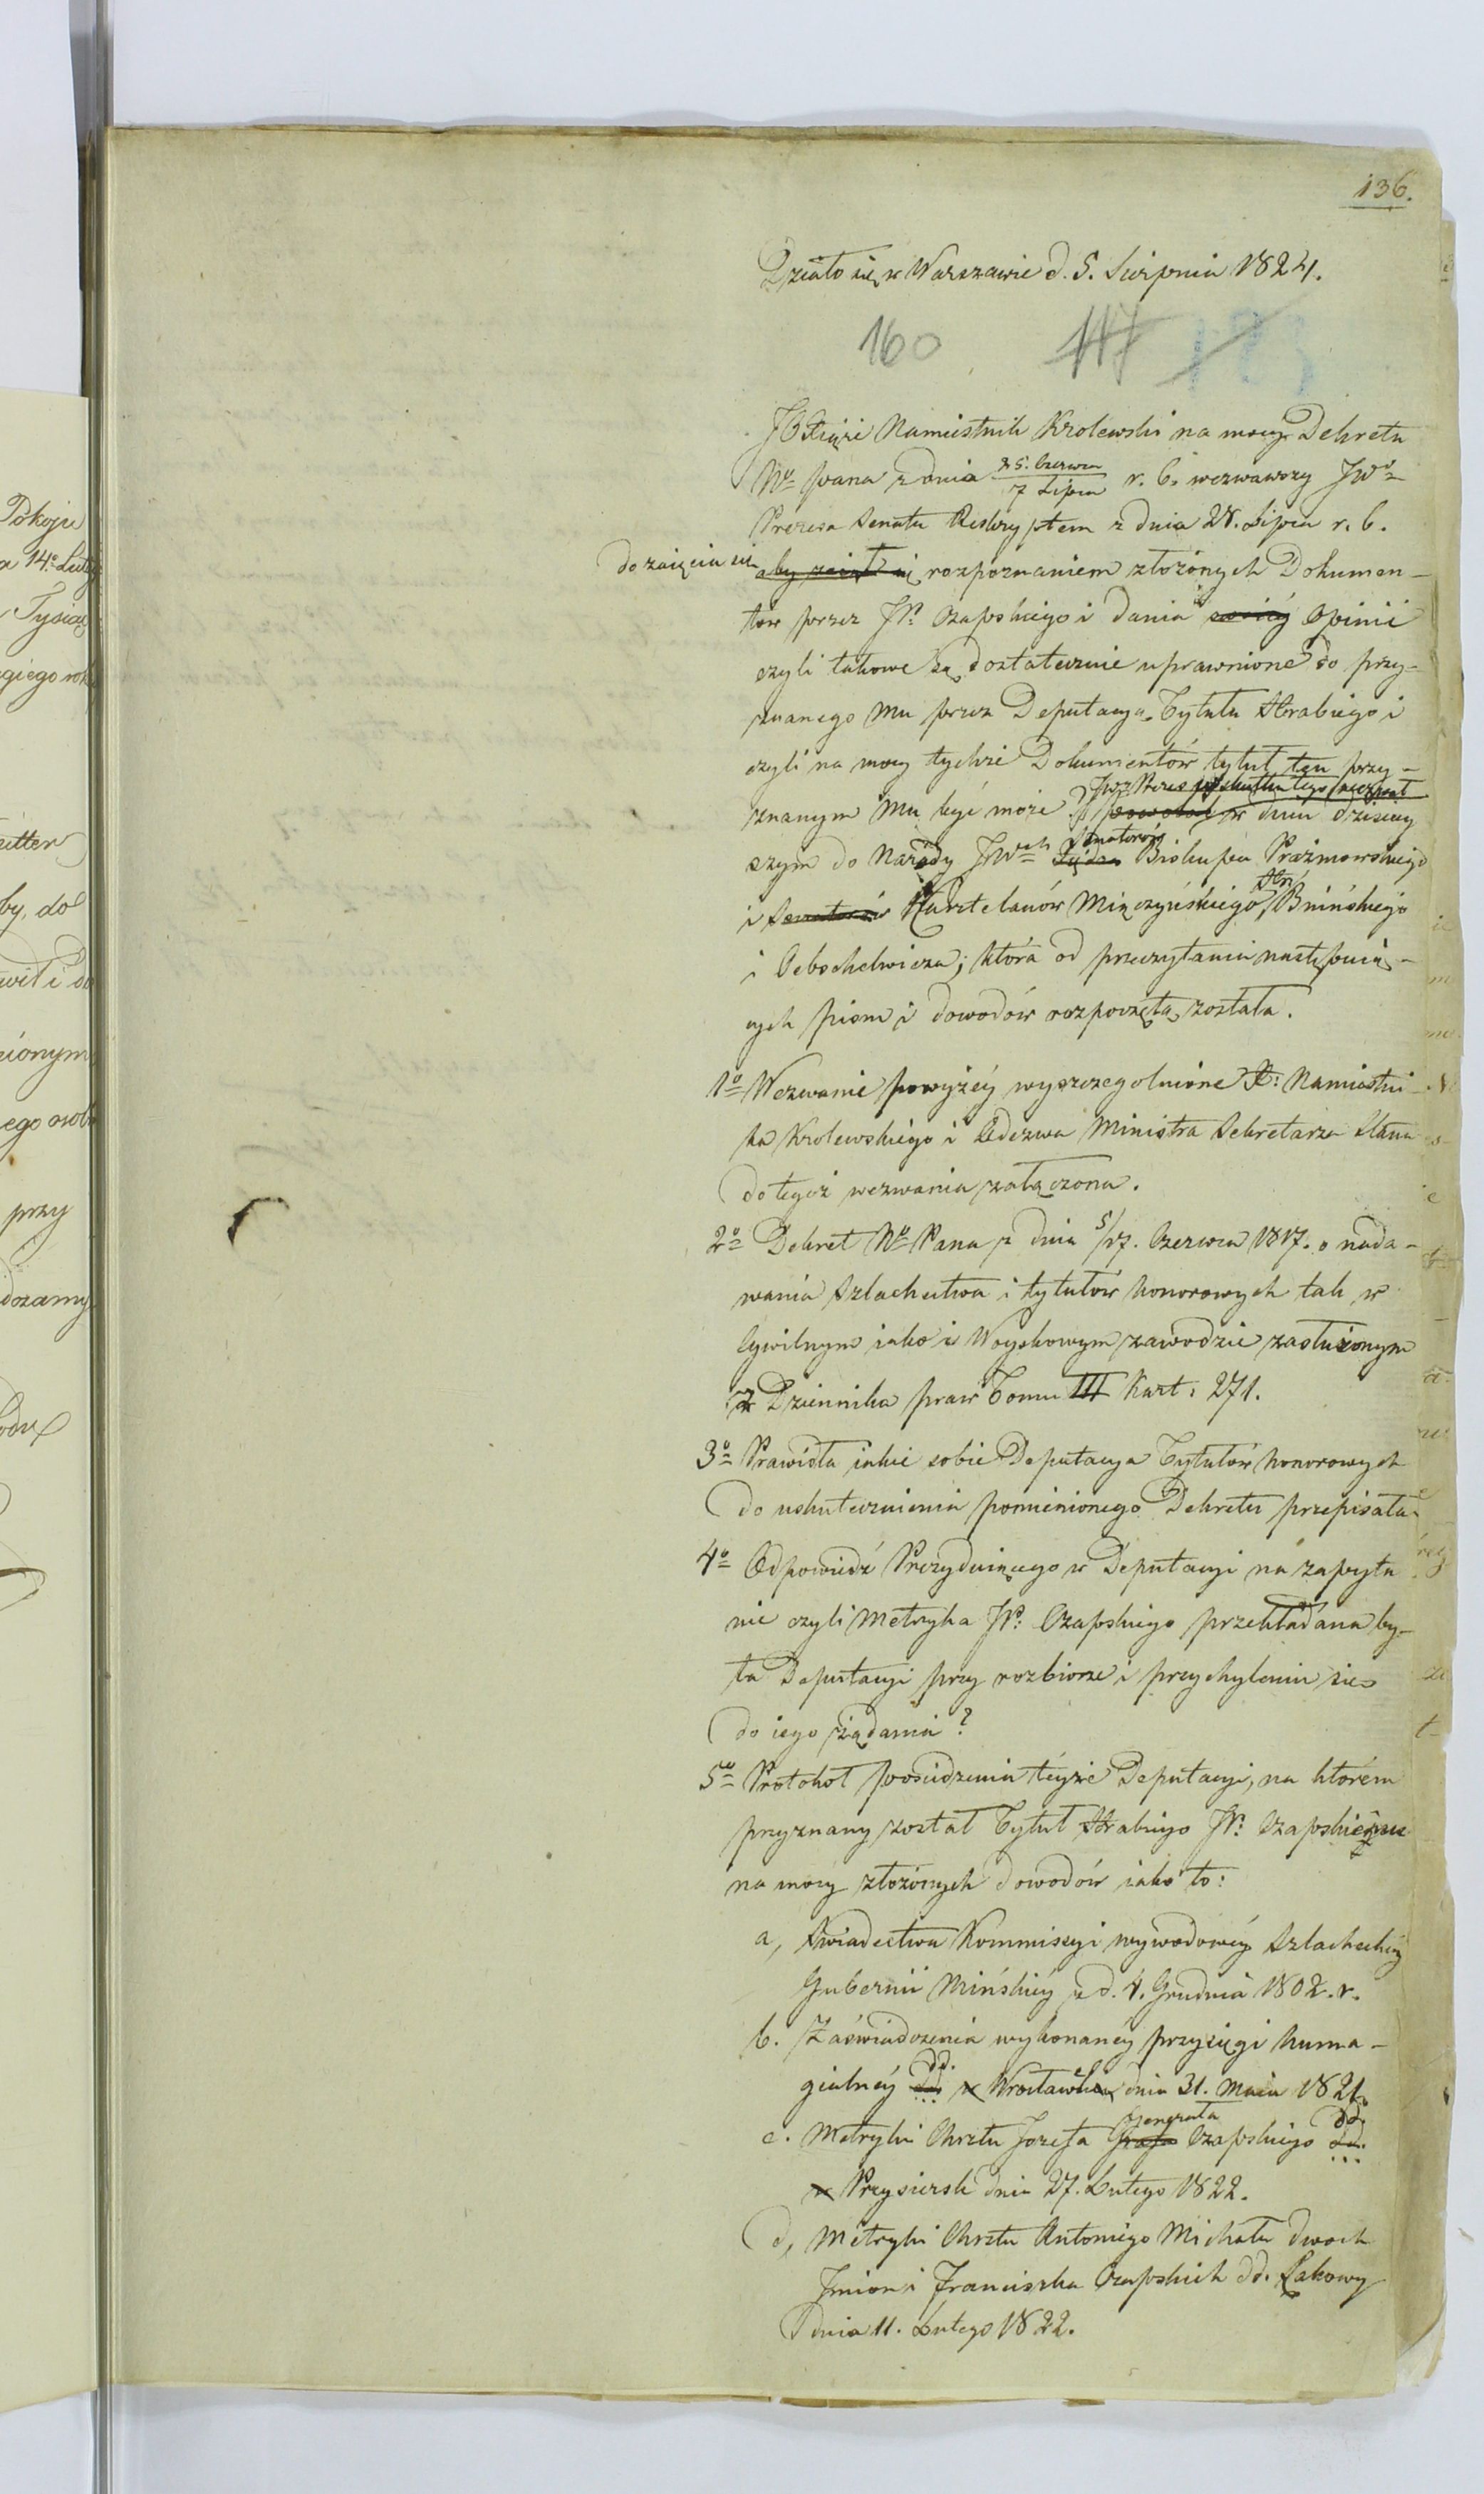 136.
Działo się w Warszawie d. 5. Sierpnia 1824.
160 117
JO Xiąże Namiestnik Krolewski na mocy Dekretu
Nº Pana z dnia 25. Czerwca / 7 Lipca r. b. wezwawszy JWº
Prezesa Senatu Reskryptem z dnia 28. Lipca r. b.
do zaięcia się aby zaiął się rozpoznaniem złożonych Dokumen-
tow przez JP. Czapskiego i dania swéiéy Opinii
czyli takowe są dostatecznie uprawnione do przy-
znanego mu przez Deputacyą Tytułu Hrabiego i
czyli na mocy tychże Dokumentów tytuł ten przy-
JWº Prezes w skutku tego wezwał
znanym mu być może? powołał w dniu dzisiey
Senatorów
szym do Narady JWch Biskupa Prażmowskiego
Hrº
i Senatorów Kasztelanów Miączyńskiego, Bnińskiego
i Ochochelwicza; która od przeczytania następuią-
cych pism i dowodów rozpoczętą została.
1º Wezwanie powyżéy wyszczegolnione X: Namiestni-
ka Krolewskiego i Odezwa Ministra Sekretarza Stanu
do tegoż wezwania załączona.
2º Dekret Nº Pana z dnia 5/17. Czerwca 1817. o nada-
wania Szlachectwa i tytułów honorowych tak w
Cywilnym iako i Woyskowym zawodzie zasłużonym
z Dziennika praw Tomu III Kart: 271.
3º Prawidła iakie sobie Deputacya Tytułów honorowych
do uskutecznienia pomienionego Dekretu przepisała.
4º Odpowiedź Prezyduiącego w Deputacyi na zapyta
nie czyli Metryka JP: Czapskiego przekładana by-
ła Deputacyi przy rozbiorze i przychyleniu się
do iego żądania?
5º Protokoł posiedzenia téyże Deputacyi, na którém
przyznany został Tytuł Hrabiego JP: Czapskiemu
na mocy złożonych dowodów iako to:
a, Swiadectwa Kommissyi wywodowéy Szlacheckiéy
Gubernii Mińskiéy z d. 4. Grudnia 1802. r.
b. Zaświadczenia wykonanéy przysięgi homa-
gialnéy dd. w Wrocławku dnia 31. Maia 1821.
Generała
c. Metryki Chrztu Jozefa Grafa Czapskiego dd.
w Przysiersk dnia 27. Lutego 1822.
d, Metryki Chrztu Antoniego Michała dwoch
Imion i Franciszka Czapskich dd. Łakowy
dnia 11. Lutego 1822.
Pokoju
a 14º Lute
Tysiąc
giego rok
by, do
ionym
ego osob
przy